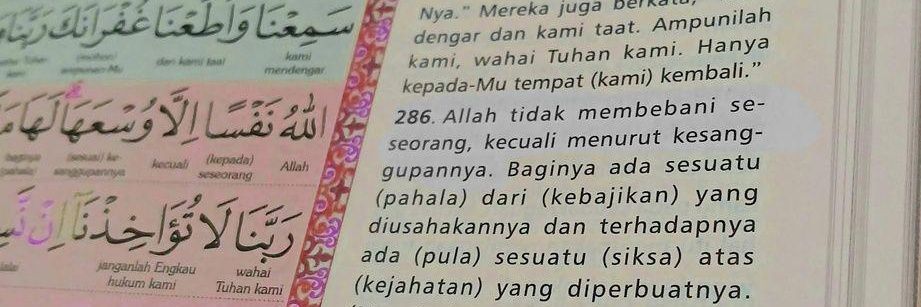 سَمِعْنَا وَاَطَعْنَا غُفْرَانَكَ رَبَّنَا
dan kami taat kami mendengar
اللّٰهُ نَفْسًا اِلَّا وُسْعَهَا لَهَا مَا
(sesuai) ke-sanggupannya kecuali (kepada) seseorang Allah
رَبَّنَا لَا تُؤَاخِذْنَآ اِنْ
janganlah Engkau hukum kami wahai Tuhan kami
Nya." Mereka juga berkata,
dengar dan kami taat. Ampunilah
kami, wahai Tuhan kami. Hanya
kepada-Mu tempat (kami) kembali."
286. Allah tidak membebani se-
seorang, kecuali menurut kesang-
gupannya. Baginya ada sesuatu
(pahala) dari (kebajikan) yang
diusahakannya dan terhadapnya
ada (pula) sesuatu (siksa) atas
(kejahatan) yang diperbuatnya.